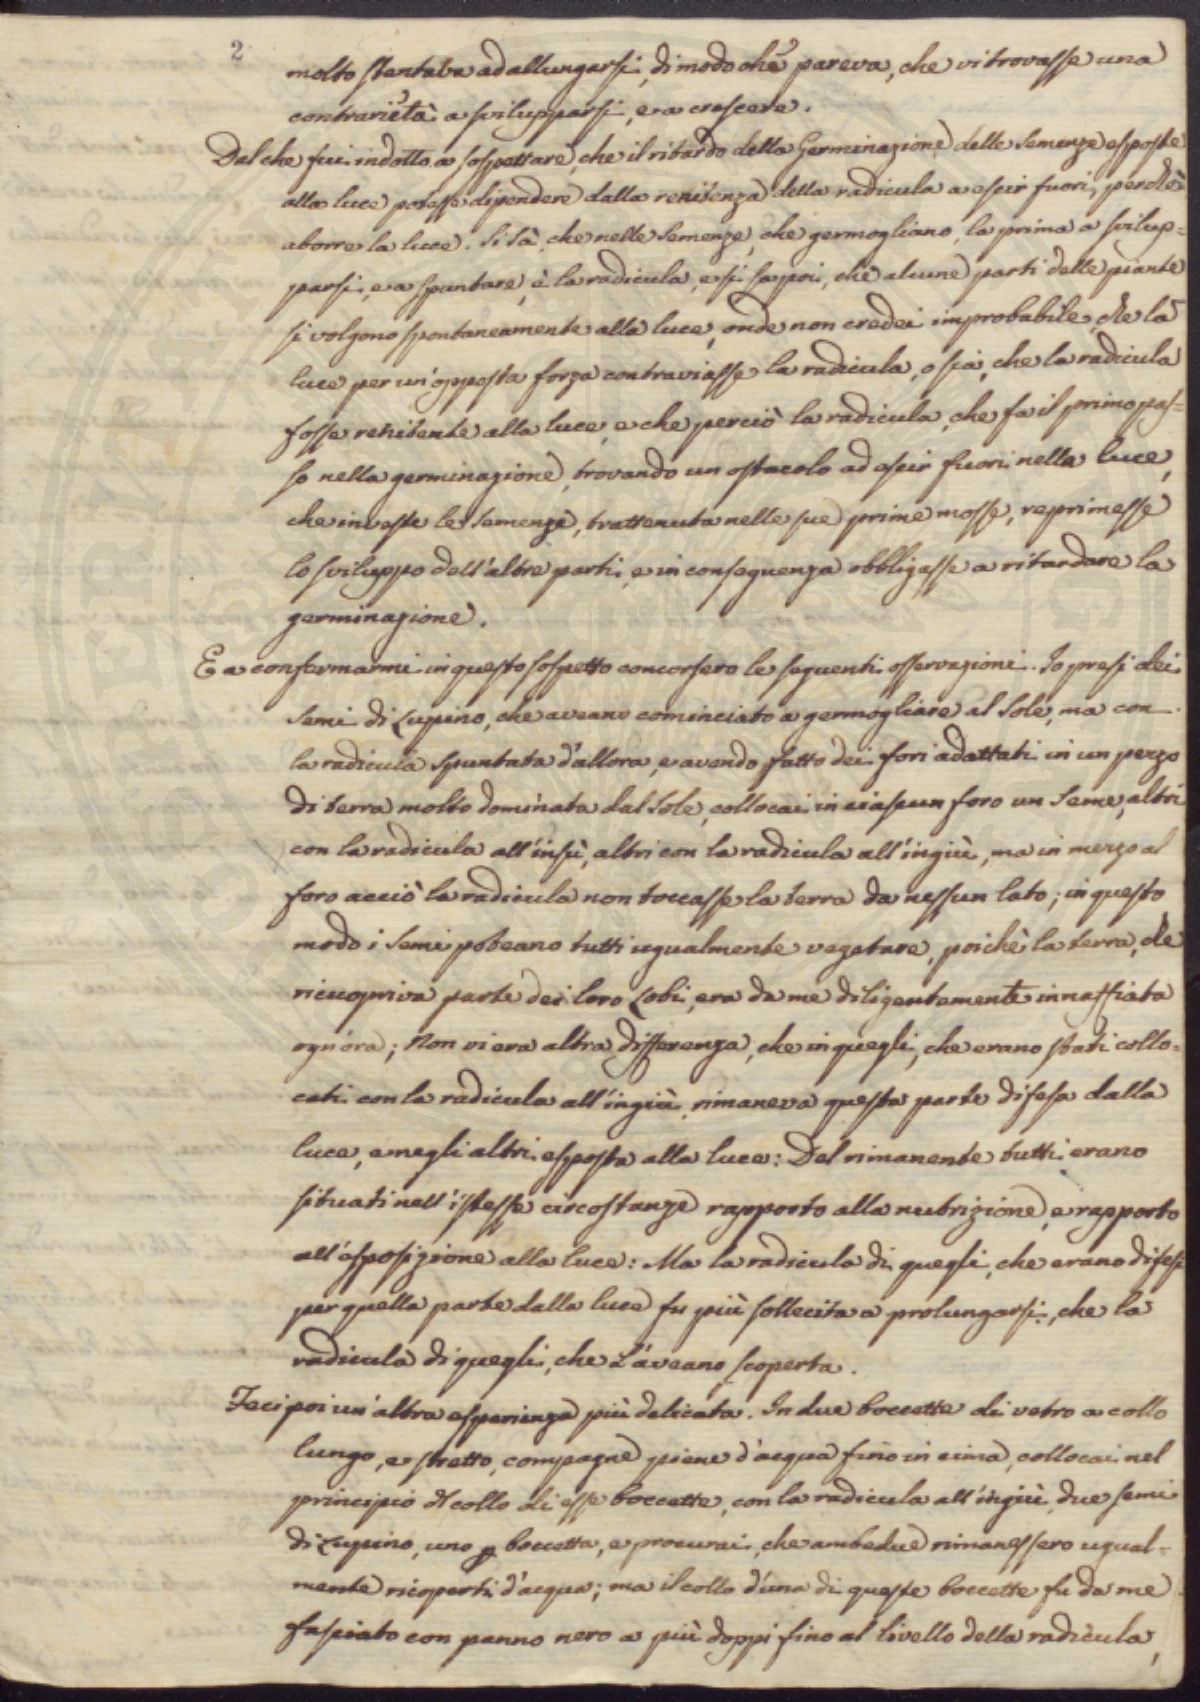 2
molto stentava ad allungarsi, di modo che pareva, che vi trovasse una
contrarietà a svilupparsi, e a crescere.
Dal che fui indotto a sospettare, che il ritardo della Germinazione delle Semenze esposte
alla luce potesse dipendere dalla renitenza della radicula a escir fuori, perchè
aborre la luce. Si sà, che nelle Semenze, che germogliano, la prima a svilup=
parsi, e a spuntare, è la radicula, e si sa poi, che alcune parti delle piante
si volgono spontaneamente alla luce, onde non credei improbabile, che la
luce per un'opposta forza contraviasse la radicula, o sia, che la radicula
fosse renitente alla luce, e che perciò la radicula, che fa il primo pas=
so nella germinazione, trovando un ostacolo ad escir fuori nella luce,
che investe le Semenze, trattenuta nelle sue prime mosse, reprimesse
lo sviluppo dell'altre parti, e in conseguenza obbligasse a ritardare la
germinazione.
E a confermarmi in questo sospetto concorsero le seguenti osservazioni. Io presi dei
Semi di Lupino, che aveano cominciato a germogliare al Sole, ma con
la radicula spuntata d'allora, e avendo fatto dei fori adattati in un pezzo
di terra molto dominata dal Sole, collocai in ciascun foro un Seme, altri
con la radicula all'insù, altri con la radicula all'ingiù, ma in mezzo al
foro acciò la radicula non toccasse la terra da nessun lato; in questo
modo i Semi poteano tutti ugualmente vegetare, poichè la terra, che
ricuopriva parte dei loro Lobi, era da me diligentemente innaffiata
ogn'ora; Non vi era altra differenza, che in quegli, che erano stati collo=
cati con la radicula all'ingiù, rimaneva questa parte difesa dalla
luce, e negli altri esposta alla luce: Del rimanente tutti erano
situati nell'istesse circostanze rapporto alla nutrizione, e rapporto
all'esposizione alla luce: Ma la radicula di quegli, che erano difesi
per quella parte dalla luce fu più sollecita a prolungarsi, che la
radicula di quegli, che l'aveano scoperta.
Feci poi un'altra esperienza più delicata. In due boccette di vetro a collo
lungo, e stretto, compagne piene d'acqua fino in cima, collocai nel
principio del collo di esse boccette, con la radicula all'ingiù, due semi
di Lupino, uno p boccetta, e procurai, che ambedue rimanessero ugual=
mente ricoperti d'acqua; ma il collo d'una di queste boccette fu da me
fasciato con panno nero a più doppi fino al livello della radicula,